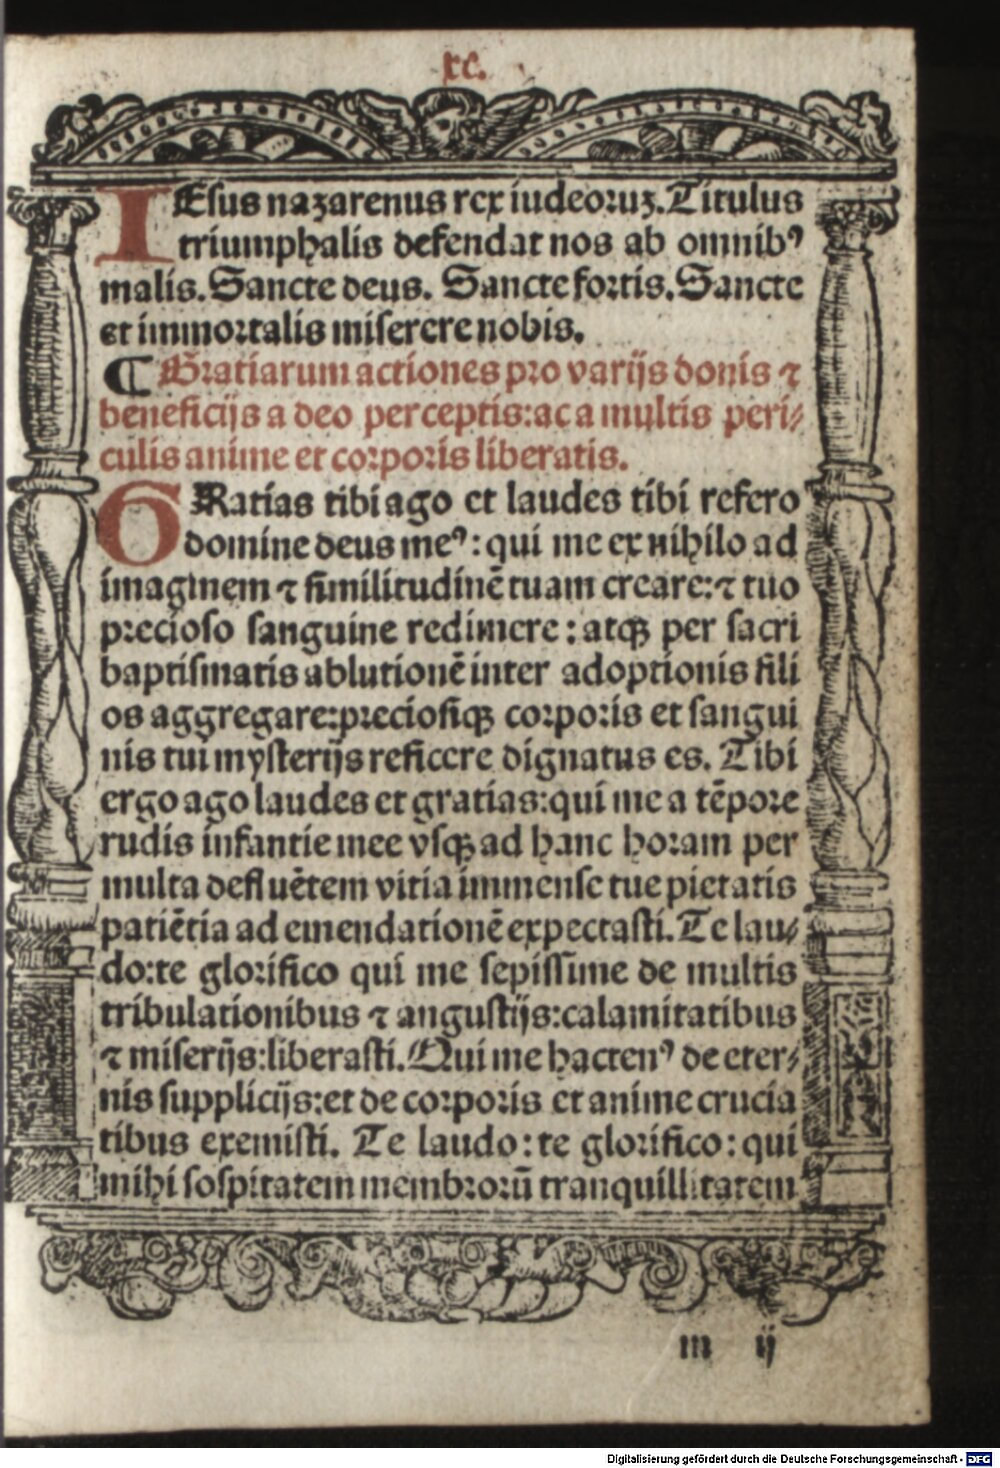 xc.
IEsus nazarenus rex iudeoruꝫ. Titulus
triumphalis defendat nos ab omnibꝰ
malis. Sancte deus. Sancte fortis. Sancte
et immortalis miserere nobis.
¶ Gratiarum actiones pro varijs donis ⁊
beneficijs a deo perceptis: ac a multis peri⸗
culis anime et corporis liberatis.
GRatias tibi ago et laudes tibi refero
domine deus meꝰ: qui me ex nihilo ad
imaginem ⁊ similitudinē tuam creare: ⁊ tuo
precioso sanguine redimere: atqꝫ per sacri
baptismatis ablutionē inter adoptionis fili
os aggregare: preciosiqꝫ corporis et sangui
nis tui mysterijs reficere dignatus es. Tibi
ergo ago laudes et gratias: qui me a tēpore
rudis infantie mee vsqꝫ ad hanc horam per
multa defluētem vitia immense tue pietatis
patiētia ad emendationē expectasti. Te lau⸗
do: te glorifico qui me sepissime de multis
tribulationibus ⁊ angustijs: calamitatibus
⁊ miserijs: liberasti. Qui me hactenꝰ de eter⸗
nis supplicijs: et de corporis et anime crucia
tibus exemisti. Te laudo: te glorifico: qui
mihi sospitatem membrorū tranquillitatem
m ij
Digitalisierung gefördert durch die Deutsche Forschungsgemeinschaft - DFG